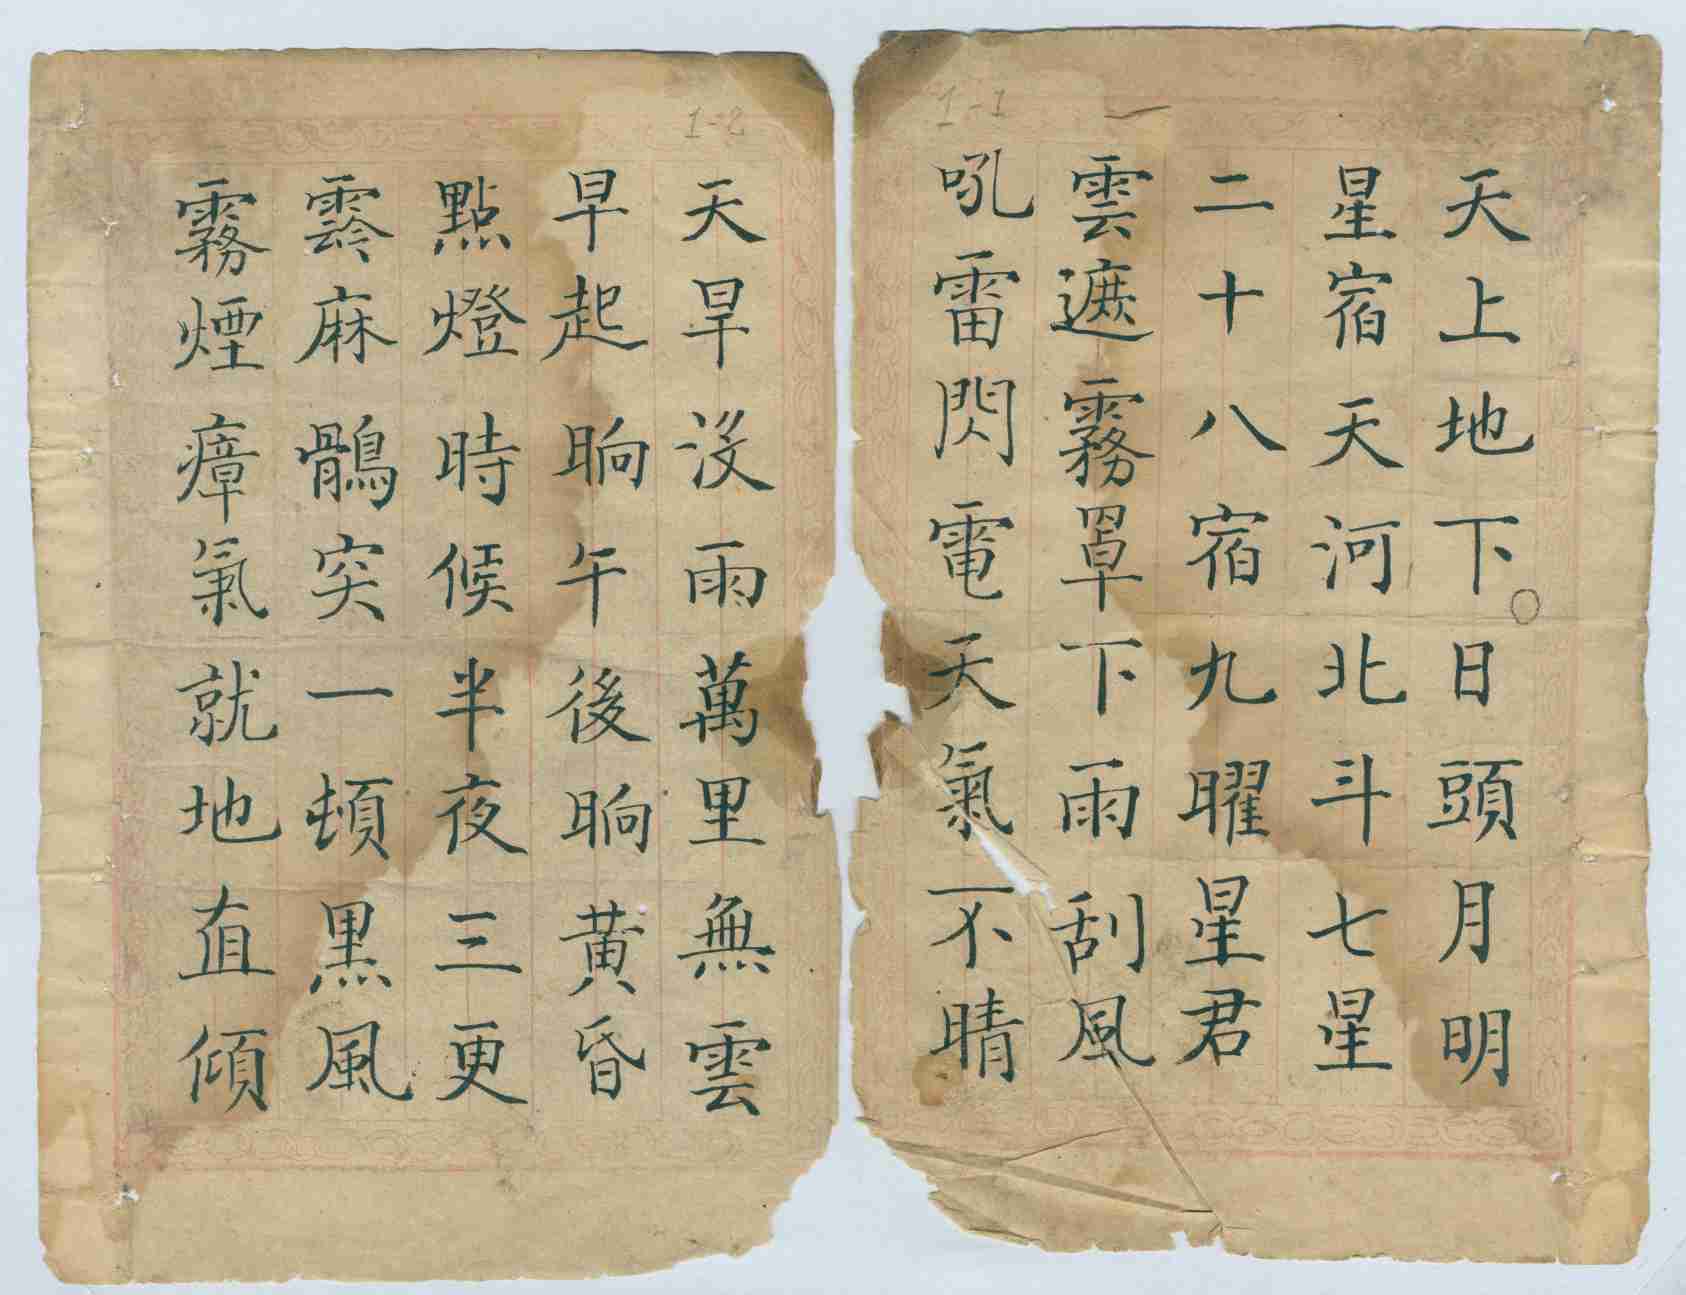 1-1
天上地下日頭月明
星宿天河北斗七星
二十八宿九曜星君
雲遮霧罩下雨刮風
吼雷閃電天氣不晴
1-2
天旱没雨萬里無雲
早起晌午後晌黄昏
點燈時候半夜三更
麻鶻突一頓黑風
霧煙瘴氣就地直傾